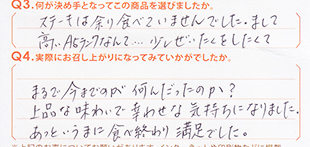 Q3.何が決め手となってこの商品を選びましたか。
ステーキは余り食べていませんでした。まして
高いA5ランクなんて…少しぜいたくをしたくて
Q4.実際にお召し上がりになってみていかがでしたか。
まるで今までのが何んだったのか?
上品な味わいで幸わせな気持ちになりました。
あっというまに食べ終わり満足でした。